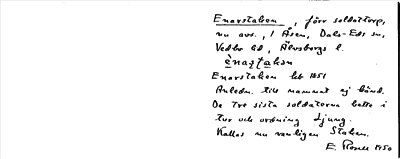 Enarstaken, förr soldattorp,
nu avs., i Åsen, Dals-Eds sn,
Vedbo hd, Älvsborgs l.
ènaṣtakən
Enarstaken hlk 1851
Anledn. till namnet ej känd.
De tre sista soldaterna hette i
tur och ordning Ljung.
Kallas nu vanligen Staken.
E. 1950